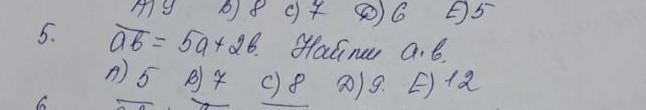 A) 9 B) 8 C) 7 D) 6 E) 5
5. ab = 5a + 2b. Найти a·b.
A) 5 B) 7 C) 8 D) 9. E) 12
6.